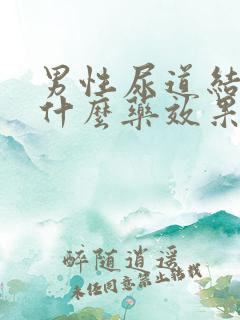 男性尿道结
什麽药效果
醉随逍遥
未经同意禁止转载